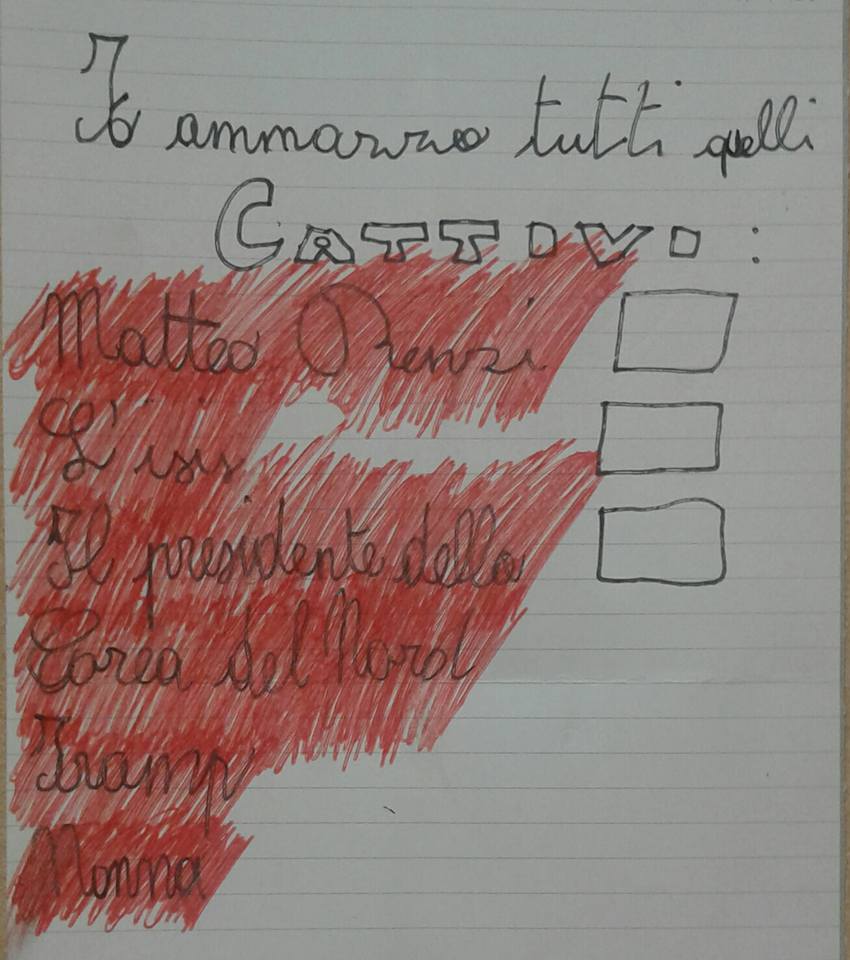 Io ammazzo tutti quelli
CATTIVI :
Matteo Renzi
L'isis
Il presidente della
Corea del Nord
Tramp
Nonna